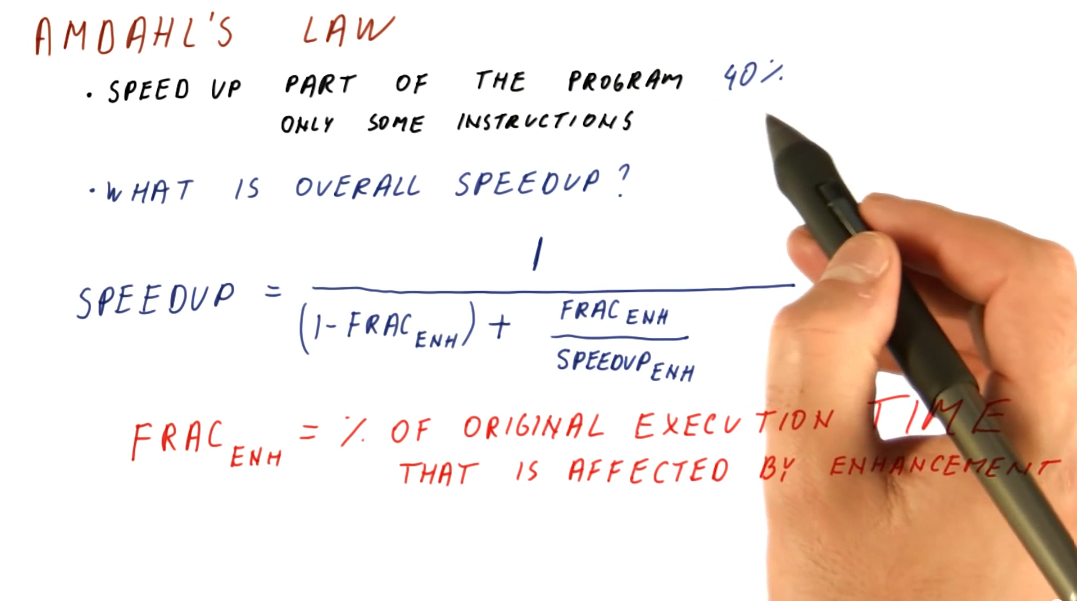 AMDAHL'S LAW
· SPEED UP PART OF THE PROGRAM 40%
ONLY SOME INSTRUCTIONS
· WHAT IS OVERALL SPEEDUP?
1
SPEEDUP = (1 - FRAC ENH) + FRAC ENH
SPEEDUP ENH
FRAC ENH = % OF ORIGINAL EXECUTION TIME
THAT IS AFFECTED BY ENHANCEMENT